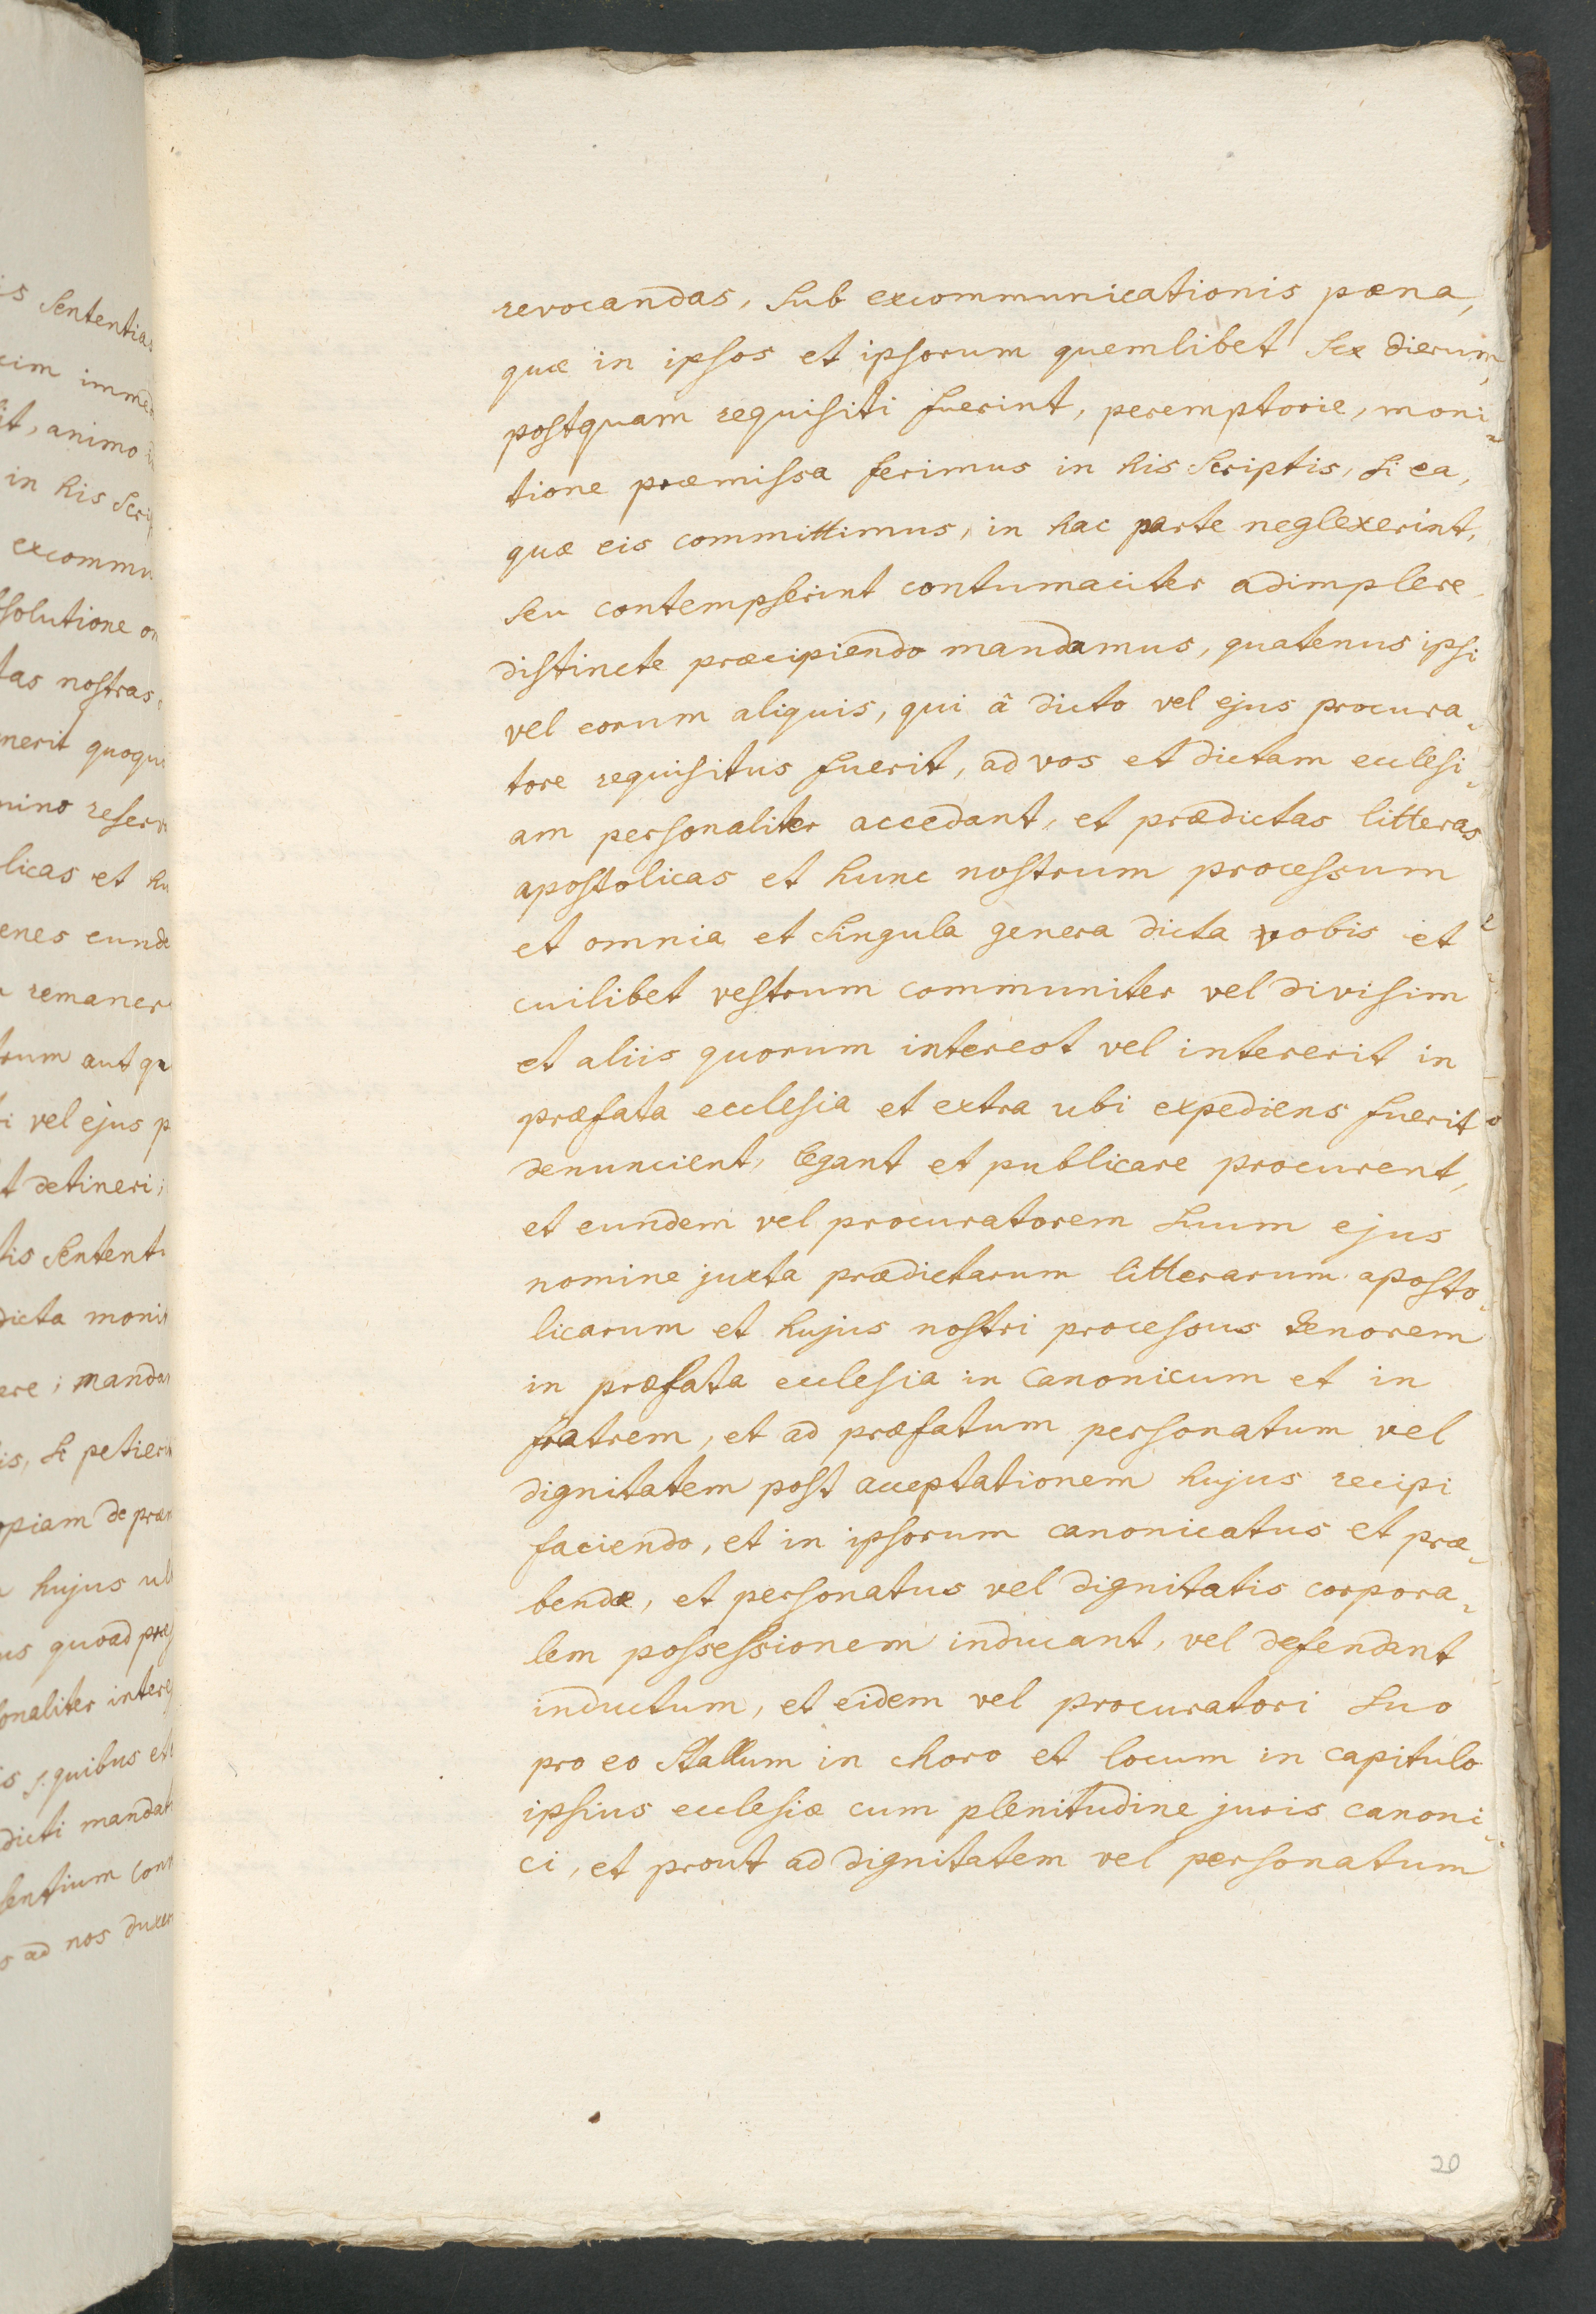 revocandas, sub excommunicationis pæna,
quæ in ipsos et ipsorum quemlibet sex dierum,
postquam requisiti fuerint, peremptorie, moni-
tione præmissa ferimus in his scriptis, si ea,
quæ eis committimus, in hac parte neglexerint,
seu contempserint contumaciter adimplere,
distincte præcipiendo mandamus, quatenus ipsi
vel eorum aliquis, qui â dicto vel ejus procura-
tore requisitus fuerit, ad vos et dictam ecclesi-
am personaliter accedant, et prædictas litteras
apostolicas et hunc nostrum processum
et omnia et singula genera dicta vobis et
cuilibet vestrum communiter vel divisim
et aliis quorum interest vel intererit in
præfata ecclesia et extra ubi expediens fuerit
denuncient, legant et publicare procurent,
et eundem vel procuratorem suum ejus
nomine juxta prædictarum litterarum aposto-
licarum et hujus nostri processus tenorem
in præfata ecclesia in canonicum et in
fratrem, et ad præfatum personatum vel
dignitatem post acceptationem hujus recipi
faciendo, et in ipsorum canonicatus et præ-
bendæ, et personatus vel dignitatis corpora-
lem possessionem inducant, vel defendant
inductum, et eidem vel procuratori suo
pro eo stallum in choro et locum in capitulo
ipsius ecclesiæ cum plenitudine juris canoni-
ci, et prout ad dignitatem vel personatum
20